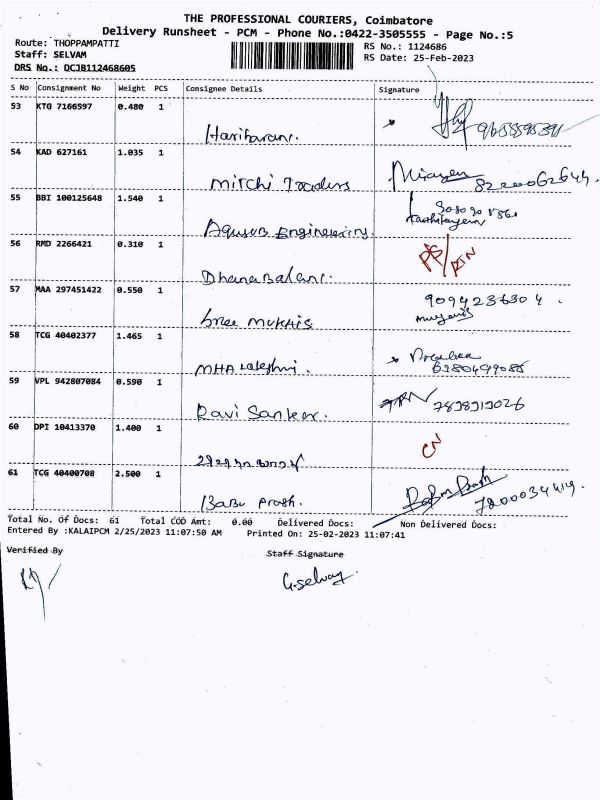 THE PROFESSIONAL COURIERS, Coimbatore
Delivery Runsheet - PCM - Phone No.:0422-3505555 - Page No.:5
Route: THOPPAMPATTI
Staff: SELVAM
DRS No.: DCJB112468605
RS No.: 1124686
RS Date: 25-Feb-2023
S No Consignment No Weight PCS Consignee Details Signature
53 KTG 7166597 0.480 1
Hariharan.
54 KAD 627161 1.035 1
Mirchi Traders
8220062644.
55 BBI 100125648 1.540 1
Engineering.
56 RMD 2266421 0.310 1
Dhanabalan.
57 MAA 297451422 0.550 1
9094236304.
Sree
58 TCG 40402377 1.465 1
MHA Lakshmi.
59 VPL 942807084 0.590 1
Ravi Sanker.
60 DPI 10413370 1.400 1
61 TCG 40400708 2.500 1
Babu Prash.
7200034419.
Total No. Of Docs: 61 Total COD Amt: 0.00 Delivered Docs: Non Delivered Docs:
Entered By :KALAIPCM 2/25/2023 11:07:50 AM Printed On: 25-02-2023 11:07:41
Verified By Staff Signature
G.selvam.